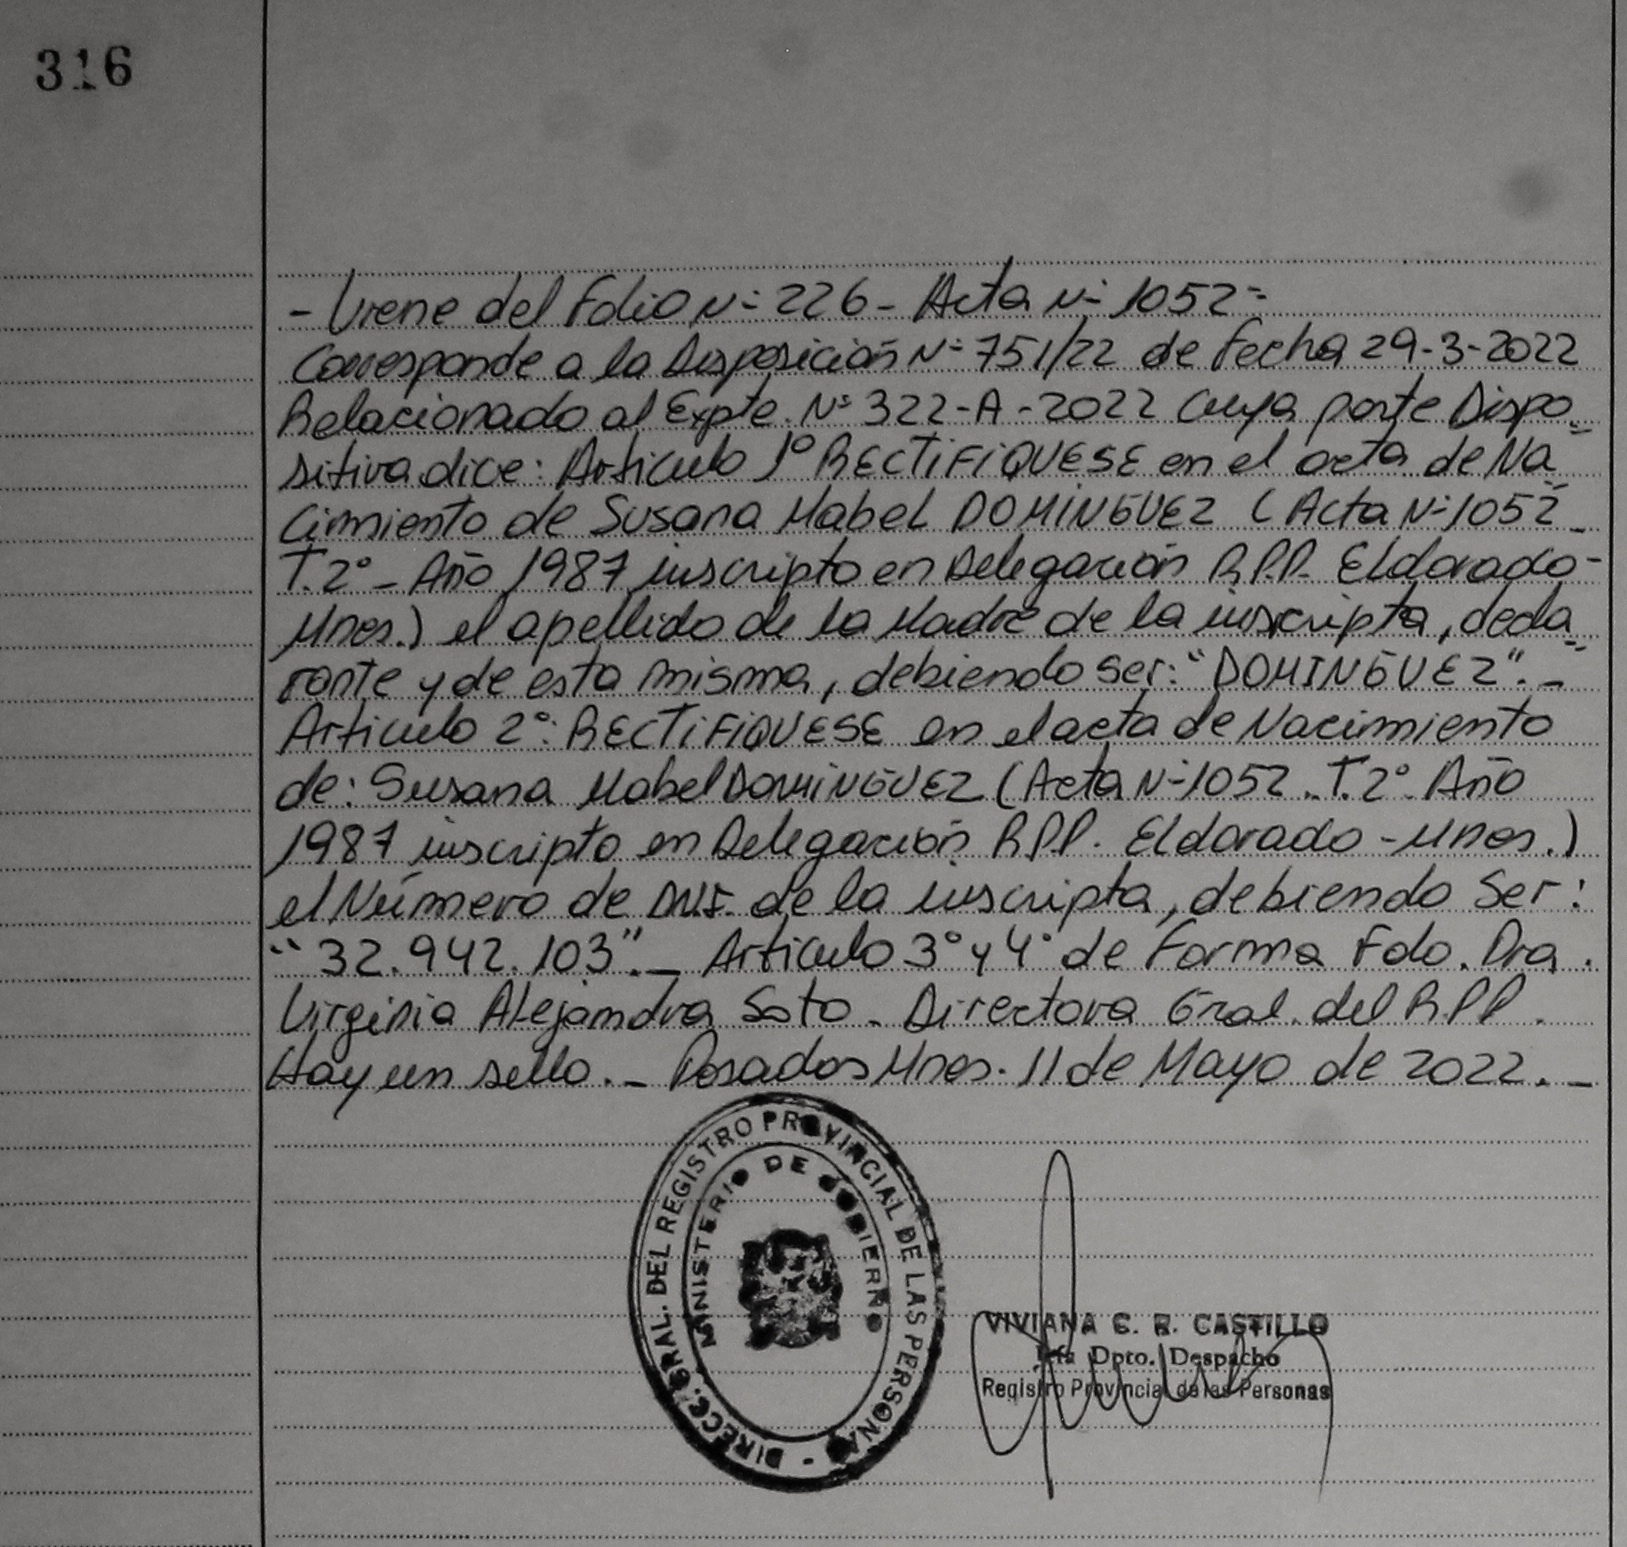 316
- Viene del Folio Nº 226 - Acta Nº 1052 =
Corresponde a la Disposición Nº 751/22 de fecha 29-3-2022
Relacionado al Expte. Nº 322-A-2022 Cuya parte Dispo=
sitiva dice: Articulo 1º RECTiFiQUESE en el acta de Na=
cimiento de Susana Mabel DOMINGUEZ (Acta Nº 1052 -
T.2º - Año 1987 inscripto en Delegación R.P.P. Eldorado -
Mnes.) el apellido de la Madre de la inscripta, decla=
rante y de esta misma, debiendo ser: "DOMINGUEZ". -
Articulo 2º: RECTiFiQUESE en el acta de Nacimiento
de: Susana Mabel DOMiNGUEZ (Acta Nº 1052. T.2º Año
1987 inscripto en Delegación R.P.P. Eldorado - Mnes.)
el Número de DNI. de la inscripta, debiendo Ser:
"32.942.103". - Articulo 3º y 4º de Forma Fdo. Dra.
Virginia Alejandra Soto - Directora Gral. del R.P.P.
Hay un sello. - Posadas Mnes. 11 de Mayo de 2022. -
DIRECC. GRAL. DEL REGISTRO PROVINCIAL DE LAS PERSONAS -
MINISTERIO DE GOBIERNO
VIVIANA C. R. CASTILLO
Jefa Dpto. Despacho
Registro Provincial de las Personas